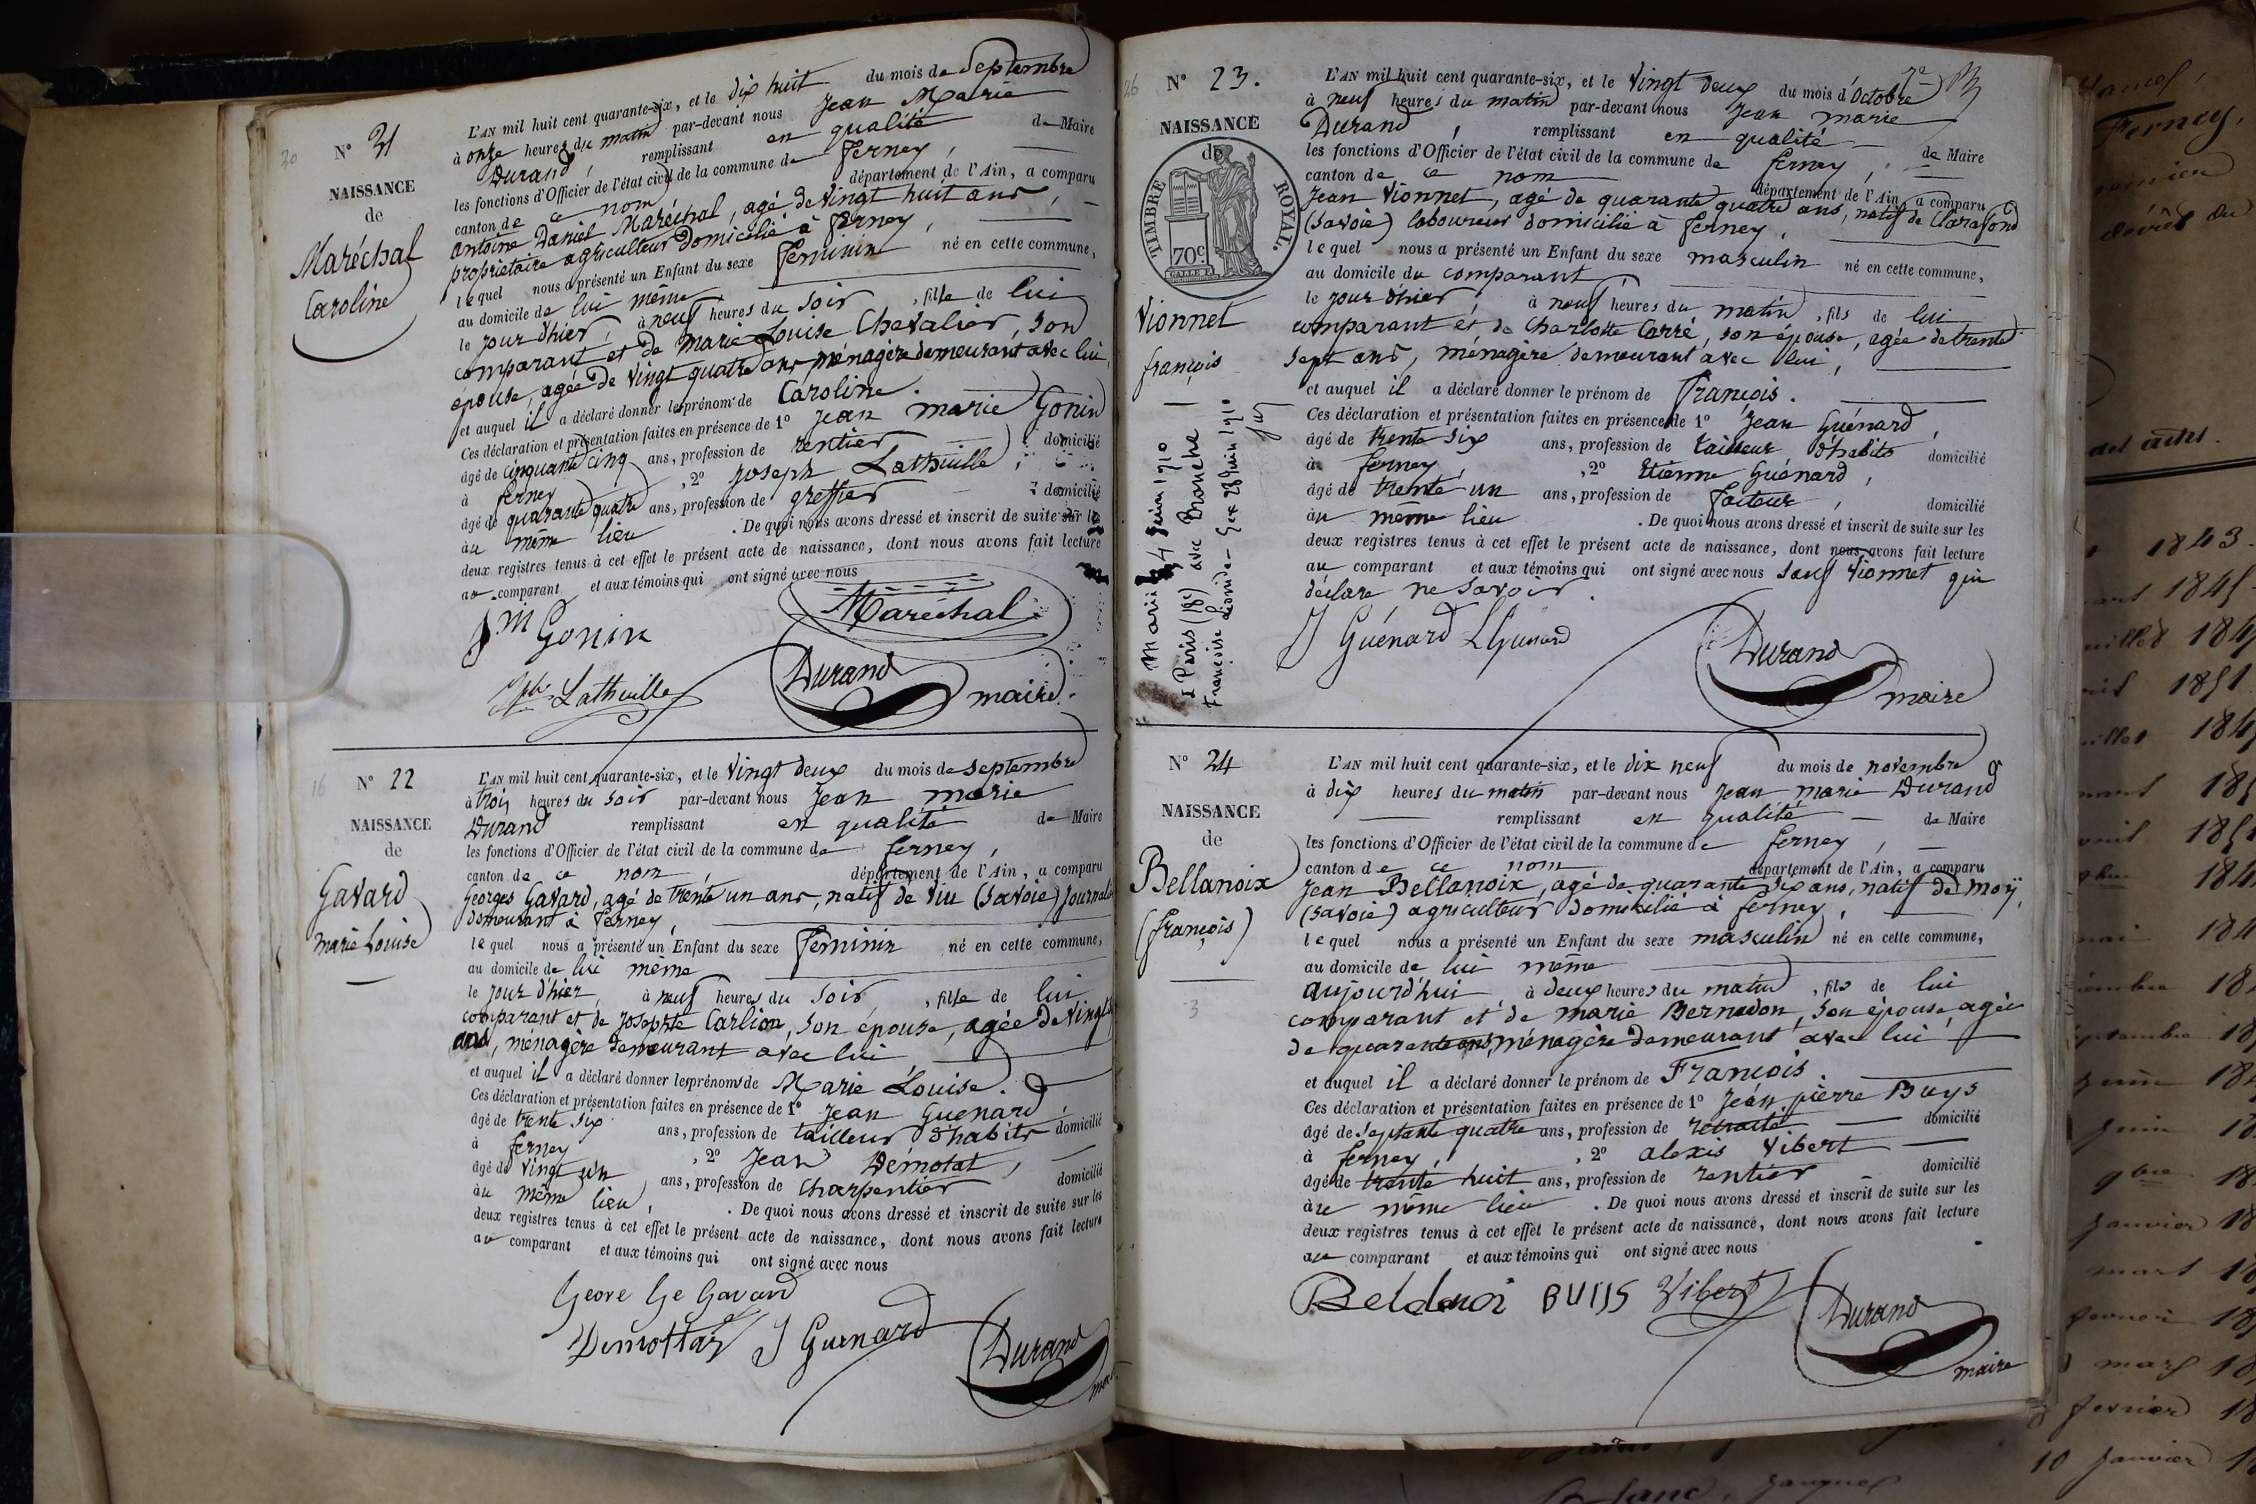 20
N° 21
NAISSANCE
de
Maréchal
Caroline
L'AN mil huit cent quarante-six, et le dix huit du mois de Septembre
à onze heures du matin par-devant nous Jean Marie
Durand, remplissant en qualité de Maire
les fonctions d'Officier de l'état civil de la commune de ferney,
canton de ce nom département de l'Ain, a comparu
Antoine Daniel Maréchal, agé de vingt huit ans,
proprietaire agriculteur domicilié à ferney,
lequel nous a présenté un Enfant du sexe feminin né en cette commune,
au domicile de lui même
le jour d'hier, à neuf heures du soir, fille de lui
comparant et de Marie Louise Chevalier, son
epouse, agée de vingt quatre ans ménagère demeurant avec lui,
et auquel il a déclaré donner les prénom de Caroline.
Ces déclaration et présentation faites en présence de 1° Jean marie Gonin
âgé de cinquante cinq ans, profession de rentier domicilié
à ferney, 2° Joseph Lathuille,
âgé de quarante quatre ans, profession de greffier domicilié
au même lieu. De quoi nous avons dressé et inscrit de suite sur les
deux registres tenus à cet effet le présent acte de naissance, dont nous avons fait lecture
au comparant et aux témoins qui ont signé avec nous
Maréchal
J m Gonin
Jph Lathuille
Durand
maire
16
N° 22
NAISSANCE
de
Gavard
marie Louise
L'AN mil huit cent quarante-six, et le vingt deux du mois de septembre
à trois heures du soir par-devant nous Jean marie
Durand remplissant en qualité de Maire
les fonctions d'Officier de l'état civil de la commune de ferney,
canton de ce nom département de l'Ain, a comparu
Georges Gavard, agé de trente un ans, natif de Viu (Savoie) journalier
demeurant à ferney,
lequel nous a présenté un Enfant du sexe feminin né en cette commune,
au domicile de lui même
le jour d'hier, à neuf heures du soir, fille de lui
comparant et de Josephte Carlion, son épouse, agée de vingt
ans, ménagère demeurant avec lui
et auquel il a déclaré donner les prénoms de Marie Louise.
Ces déclaration et présentation faites en présence de 1° Jean Guenard,
âgé de trente six ans, profession de tailleur d'habits domicilié
à ferney, 2° Jean Démotat,
âgé de vingt un ans, profession de charpentier domicilié
au même lieu. De quoi nous avons dressé et inscrit de suite sur les
deux registres tenus à cet effet le présent acte de naissance, dont nous avons fait lecture
au comparant et aux témoins qui ont signé avec nous
Geore Ge Gavard
Demottaz J Guenard
Durand
26
N° 23.
NAISSANCE
de
TIMBRE ROYAL.
70c
Vionnet
françois
Marié 4 juin 1910
à Paris (18e) avec Blanche
Françoise Gex 28 juin 1910
L'AN mil huit cent quarante-six, et le vingt deux du mois d'Octobre
à neuf heures du matin par-devant nous Jean marie
Durand, remplissant en qualité de Maire
les fonctions d'Officier de l'état civil de la commune de ferney,
canton de ce nom département de l'Ain, a comparu
Jean Vionnet, agé de quarante quatre ans, natif de Clarafond
(Savoie) laboureur domicilié à ferney,
lequel nous a présenté un Enfant du sexe masculin né en cette commune,
au domicile du comparant
le jour d'hier, à neuf heures du matin, fils de lui
comparant et de Charlotte Carré, son épouse, agée de trente
sept ans, ménagère demeurant avec lui,
et auquel il a déclaré donner le prénom de françois.
Ces déclaration et présentation faites en présence de 1° Jean Guénard,
âgé de trente six ans, profession de tailleur d'habits domicilié
à ferney, 2° Etienne Guénard,
âgé de trente un ans, profession de facteur, domicilié
au même lieu. De quoi nous avons dressé et inscrit de suite sur les
deux registres tenus à cet effet le présent acte de naissance, dont nous avons fait lecture
au comparant et aux témoins qui ont signé avec nous sauf Vionnet qui
déclare ne savoir.
J Guénard
Durand
maire
N° 24
NAISSANCE
de
Bellanoix
(françois)
3
L'AN mil huit cent quarante-six, et le dix neuf du mois de novembre
à dix heures du matin par-devant nous Jean marie Durand
remplissant en qualité de Maire
les fonctions d'Officier de l'état civil de la commune de ferney,
canton de ce nom département de l'Ain, a comparu
Jean Bellanoix, agé de quarante six ans, natif de Moÿ,
(Savoie) agriculteur domicilié à ferney,
lequel nous a présenté un Enfant du sexe masculin né en cette commune,
au domicile de lui même
aujourd'hui à deux heures du matin, fils de lui
comparant et de marie Bernadon, son épouse agée
de quarante ans, ménagère demeurant avec lui
et auquel il a déclaré donner le prénom de François.
Ces déclaration et présentation faites en présence de 1° Jean pierre Buys
âgé de septante quatre ans, profession de retraité domicilié
à ferney, 2° alexis Vibert
âgé de trente huit ans, profession de rentier domicilié
au même lieu. De quoi nous avons dressé et inscrit de suite sur les
deux registres tenus à cet effet le présent acte de naissance, dont nous avons fait lecture
au comparant et aux témoins qui ont signé avec nous
BUIJS Vibert
Durand
maire
Ferney,
1843.
1845
1851
10 Janvier